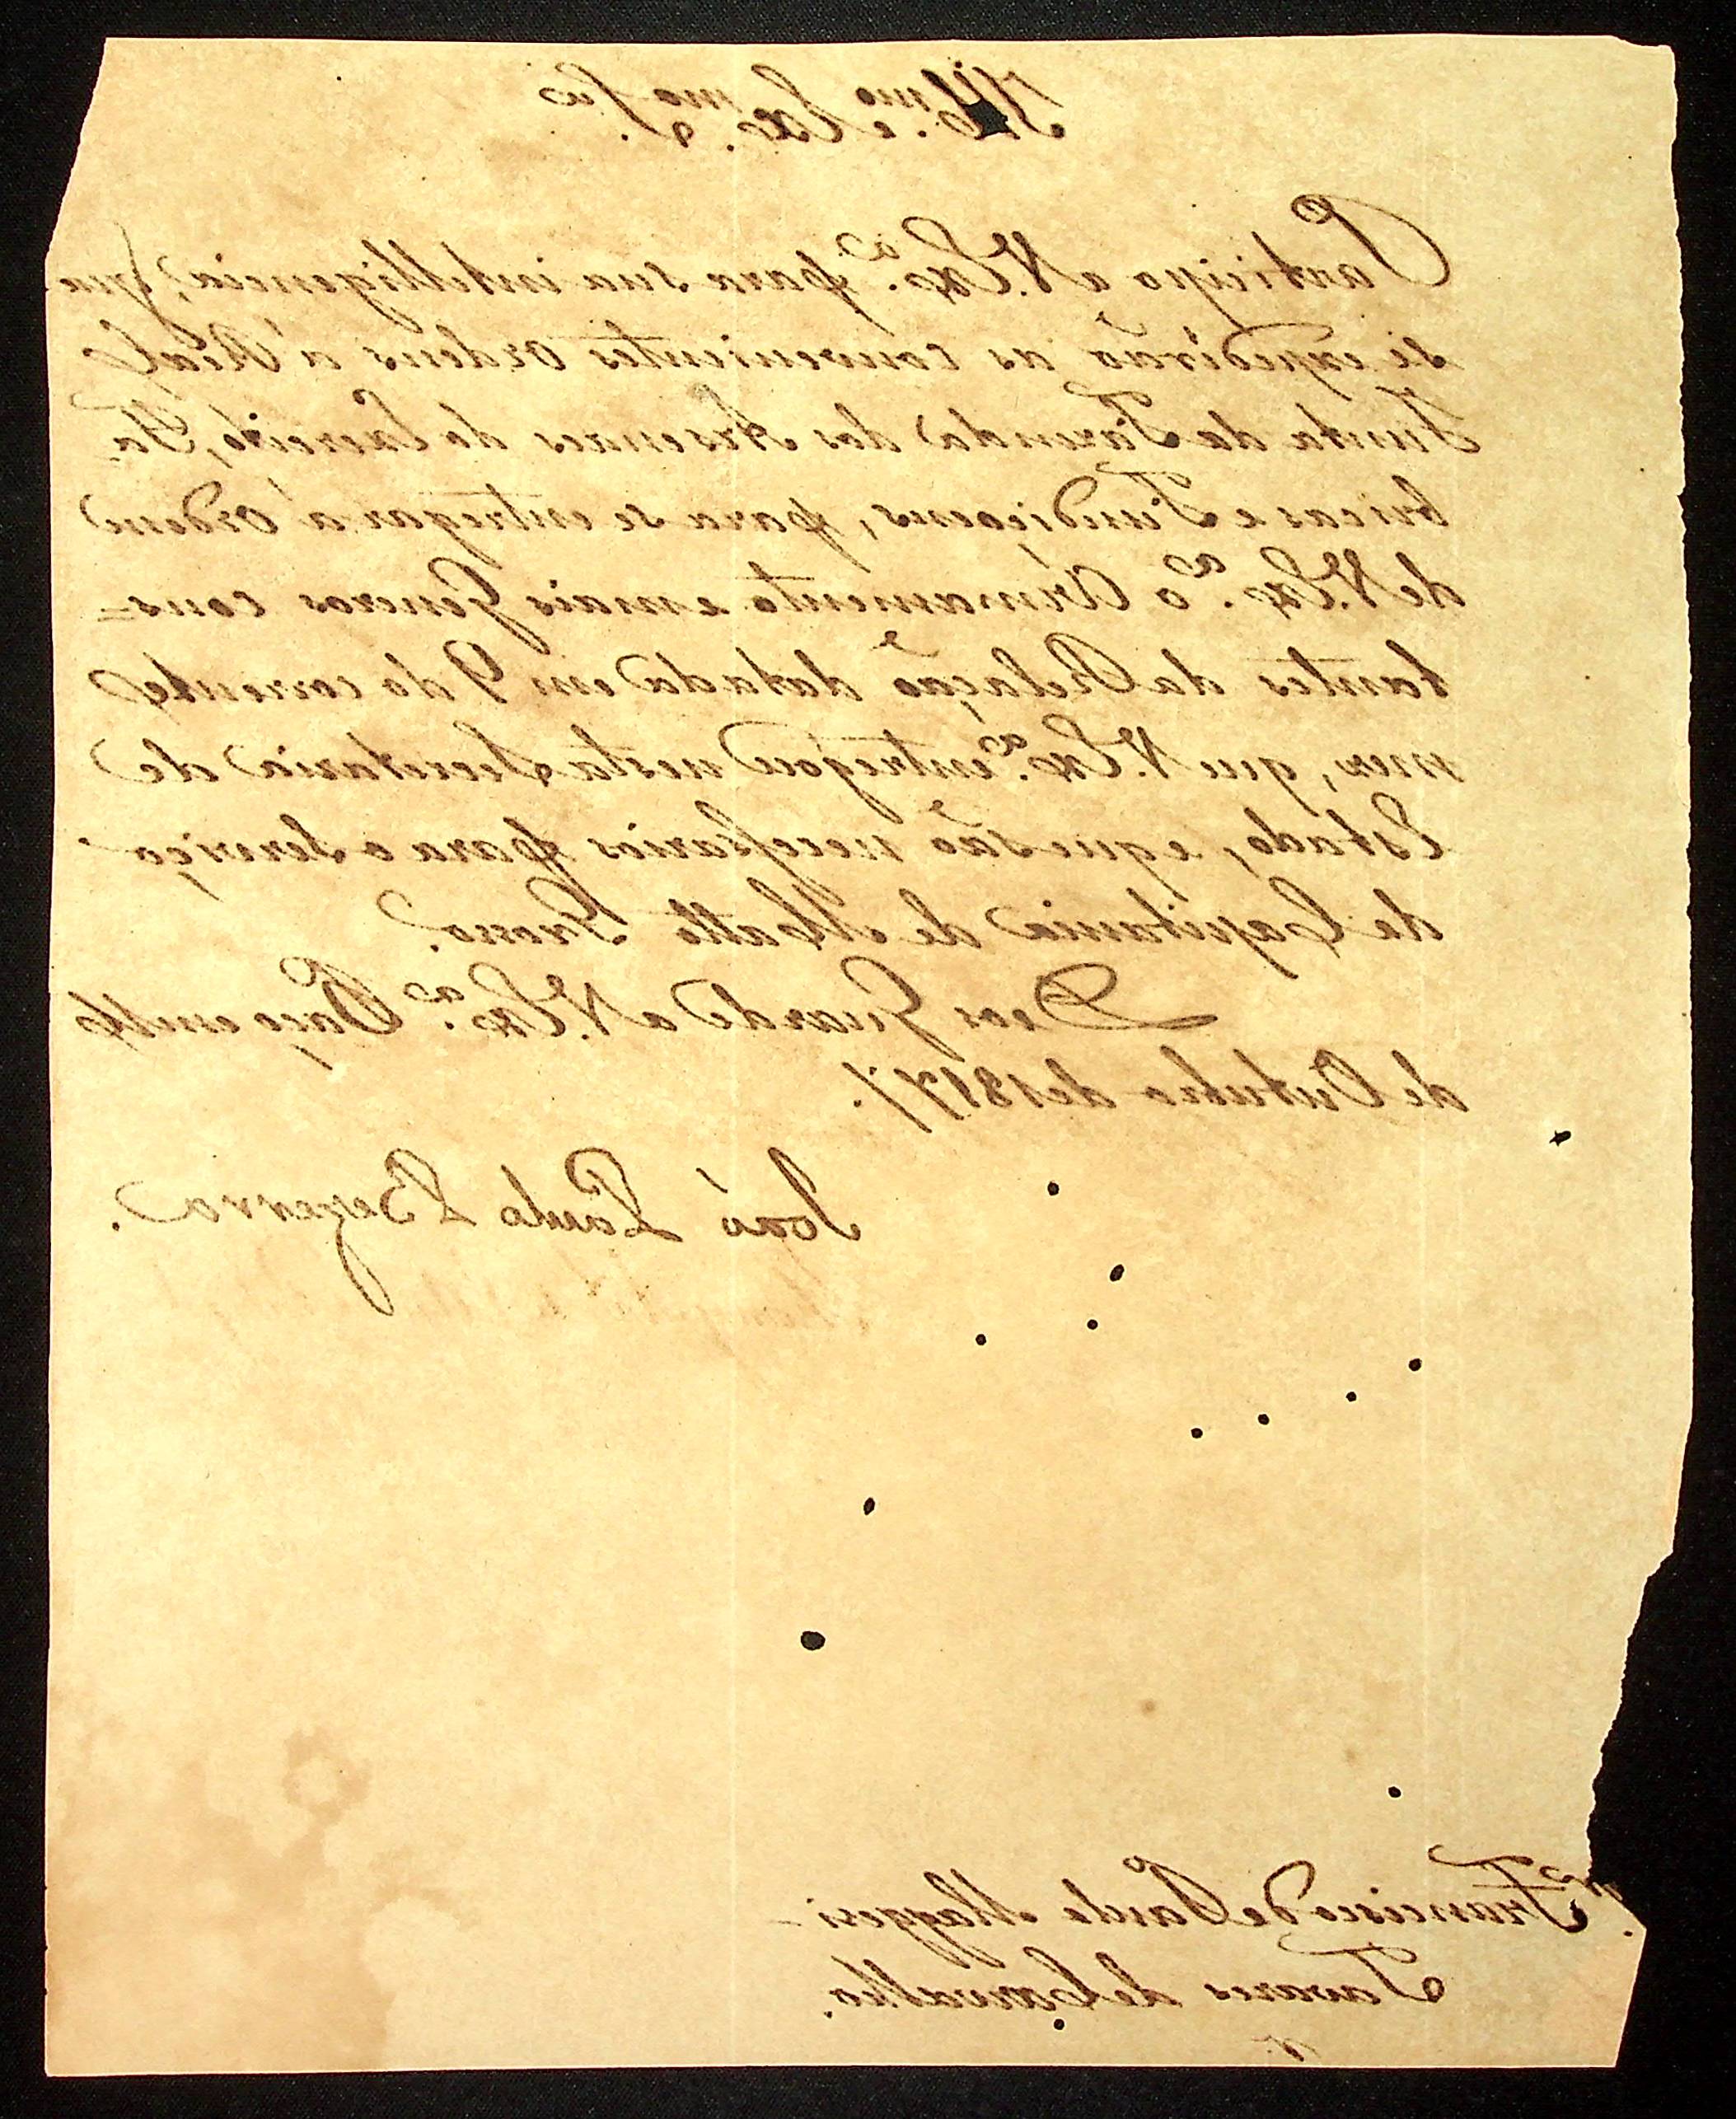 Ill.mo e Ex.mo Snr
Participo a V. Ex.a para sua intelligencia, que
se expedirão as convenientes ordens á Real
Junta da Fazenda dos Arsenaes do Exercito, Fa-
bricas e Fundiçoens, para se entregar á ordem
de V. Ex.a o Armamento e mais Generos cons=
tantes da Relação datada em 9 do corrente
mez, que V. Ex.a entregou nesta Secretaria de
Estado, e que são necessarios para o Serviço
da Capitania de Matto Grosso.
Deos Guarde a V. Ex.a Paço em
de Outubro de 1817.
João Paulo Bezerra.
Francisco de Paula Maggessi
Tavares de Carvalho.